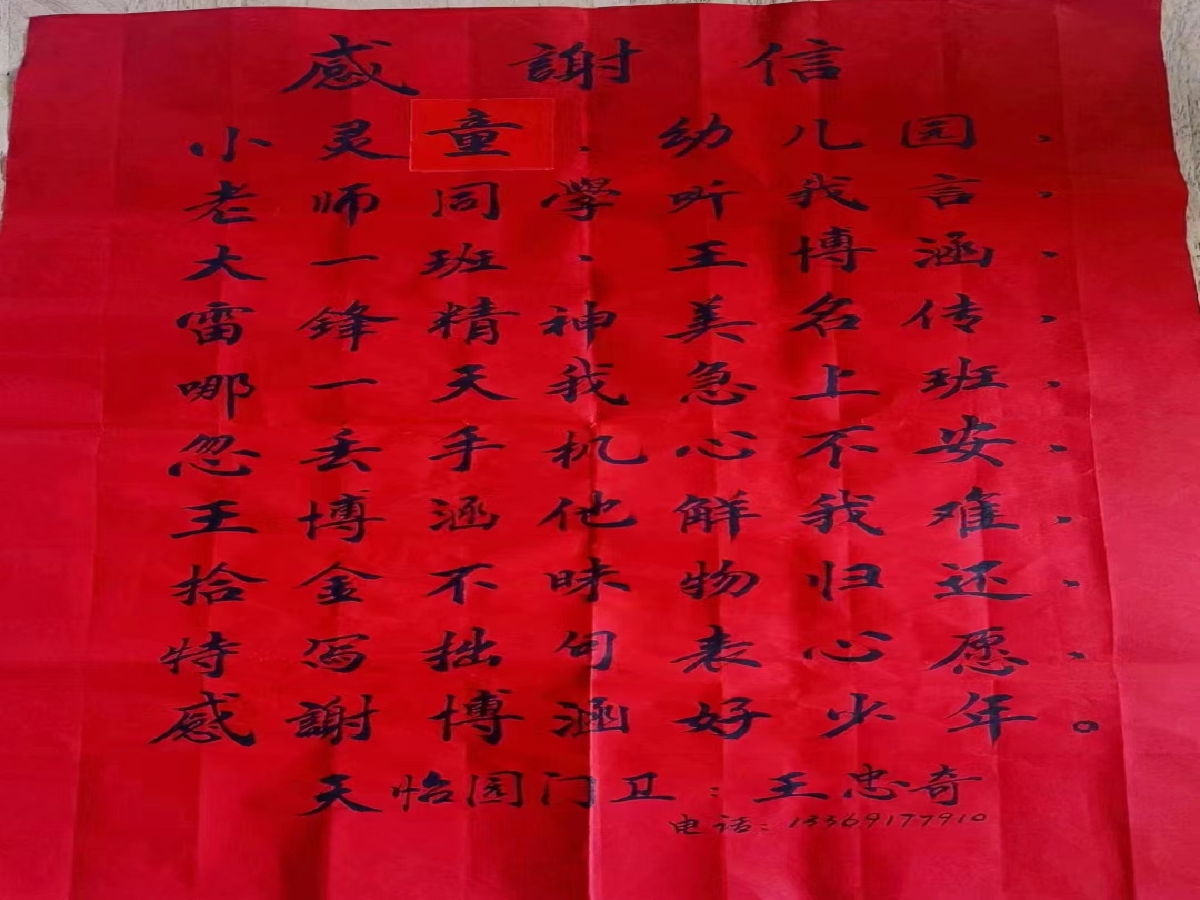 感謝信
小灵童、幼儿园、
老师同學听我言、
大一班、王博涵、
雷锋精神美名传、
哪一天我急上班、
忽丢手机心不安、
王博涵他解我难、
拾金不昧物归还、
特写拙句表心愿、
感謝博涵好少年。
天怡园门卫：王忠奇
电话：13369177910